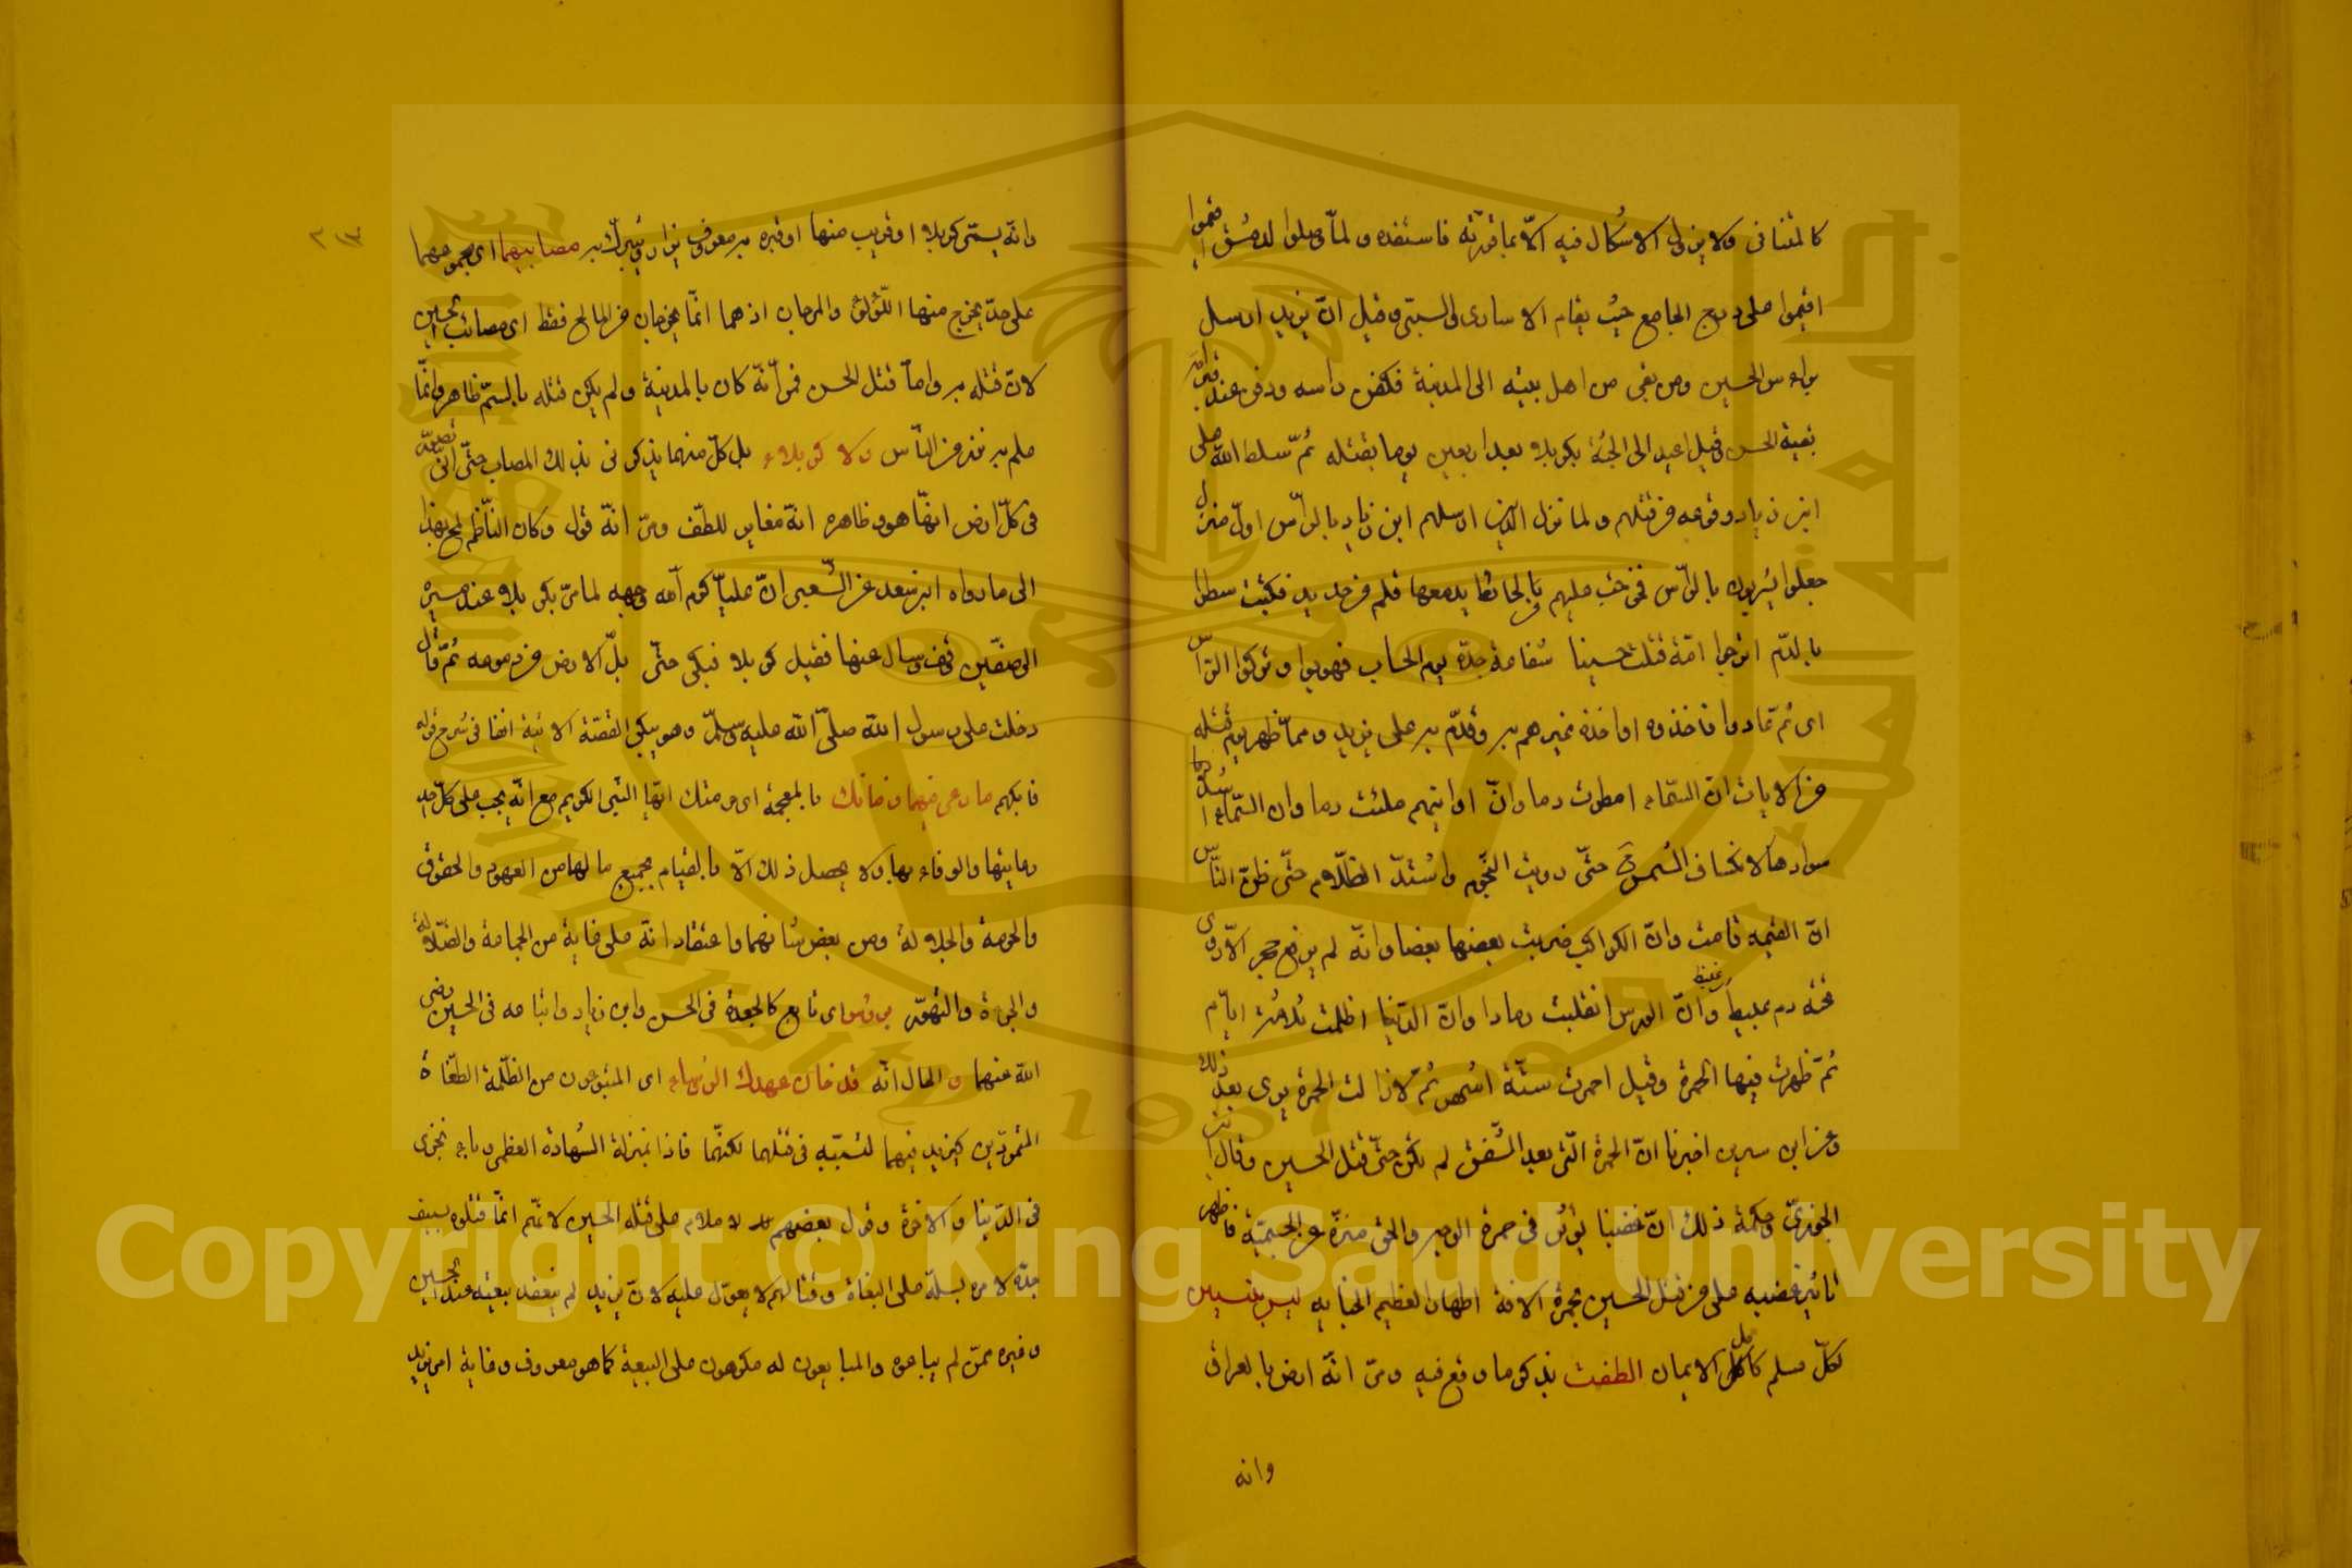 كالمتنافى ولا يزول الاشكال فيه الا بما قررته فاستفده ولما وصلوا لدمشق اقيموا
اقيموا على درج الجامع حيث يقام الاسارى والسبي وقيل ان يزيد ارسل
براس الحسين ومن بقى من اهل بيته الى المدينة فكفن راسه ودفن عند قبر امه
بقبة الحسن وقيل اعيد الى الجثة بكربلا بعد اربعين يوما بقتله ثم سلط الله على
ابن زياد وقومه من قتلهم ولما نزل الذين ارسلهم ابن زياد بالراس اول منزل
جعلوا يشربون بالراس فخرجت عليهم يد من الحائط معها قلم من حديد فكتبت سطرا
بالدم اترجوا امة قتلت حسينا شفاعة جده يوم الحساب فهربوا وتركوا الراس
اى ثم عادوا فاخذوه او اخذه غيرهم وقدم به على يزيد ومما ظهر يوم قتله
من الايات ان السماء امطرت دما وان اوانيهم ملئت دما وان السماء اشتد
سوادها لانكساف الشمس حتى رويت النجوم واشتد الظلام حتى ظن الناس
ان القيمة قامت وان الكواكب ضربت بعضها بعضا وانه لم يرفع حجر الا روى
تحته دم عبيط وان الورس انقلبت رمادا وان الدنيا اظلمت ثلاثة ايام
ثم ظهرت فيها الحمرة وقيل احمرت ستة اشهر ثم لا زالت الحمرة ترى بعد ذلك
وعن ابن سيرين اخبرنا ان الحمرة التى بعد الشفق لم تكن حتى قتل الحسين وقال ابن
الجوزى وحكمة ذلك ان غضبنا يؤثر فى حمرة الوجه والحق منزه عن الجسمية فاظهر
تاثير غضبه على من قتل الحسين بحمرة الافق اظهارا لعظيم الجناية ليس ينسينى
لكل مسلم كامل الايمان الطف يذكر ما وقع فيه ومر انه ارض بالعراق
وانه
٢١٣
وانه يسمى كربلا او قريب منها او قبره به معروف يزار ويتبرك به مصابيهما اى مجموعهما
على حد يخرج منهما اللؤلؤ والمرجان اذ هما انما يخرجان من المالح فقط اى مصائب الحسين
لان قتله به واما قتل الحسن فمر انه كان بالمدينة ولم يكن قتله بالسم ظاهر وانما
علم به نفر من الناس ولا كربلاء بل كل منهما يذكرنى بذلك المصاب حتى
فى كل ارض انها هو وظاهره انه مغاير للطف ومر انه قول وكان الناظم لمح بهذا
الى ما رواه ابن سعد عن الشعبى ان عليا كرم الله وجهه لما مر بكربلا عند مسيره
الى صفين وقف وسال عنها فقيل كربلا فبكى حتى بل الارض من دموعه ثم قال
دخلت على رسول الله صلى الله عليه وسلم وهو يبكى القصة الاتية انفا فى شرح قوله
فابكهم ما رعى فيهما ذمامك بالمعجمة اى ذمتك ايها النبى الكريم مع انه يجب على كل احد
رعايتها والوفاء بها ولا يحصل ذلك الا بالقيام بجميع ما لها من العهود والحقوق
والحرمة والجلالة ومن بعض شانهما واعتقاد انه على غاية من الجهالة والضلالة
والجراة والتهور مرؤس اى تابع كالجعدة فى الحسن وابن زياد واتباعه فى الحسين رضى
الله عنهما و الحال انه قد خان عهدك الرؤساء اى المتبوعون من الظلمة الطغاة
المتمردين كيزيد فيهما لتسببه فى قتلهما لكنهما فازا بمنزلة الشهادة العظمى وباء بخزى
فى الدنيا والاخرة وقول بعضهم لا ملام على قتلة الحسين لانهم انما قتلوه بسيف
جده لامره بسله على البغاة وقتالهم لا يعول عليه لان يزيد لم ينعقد بيعته عند الحسين
وغيره ممن لم يبايعوه والمبايعون له مكرهون على البيعة كما هو معروف وغاية امر يزيد